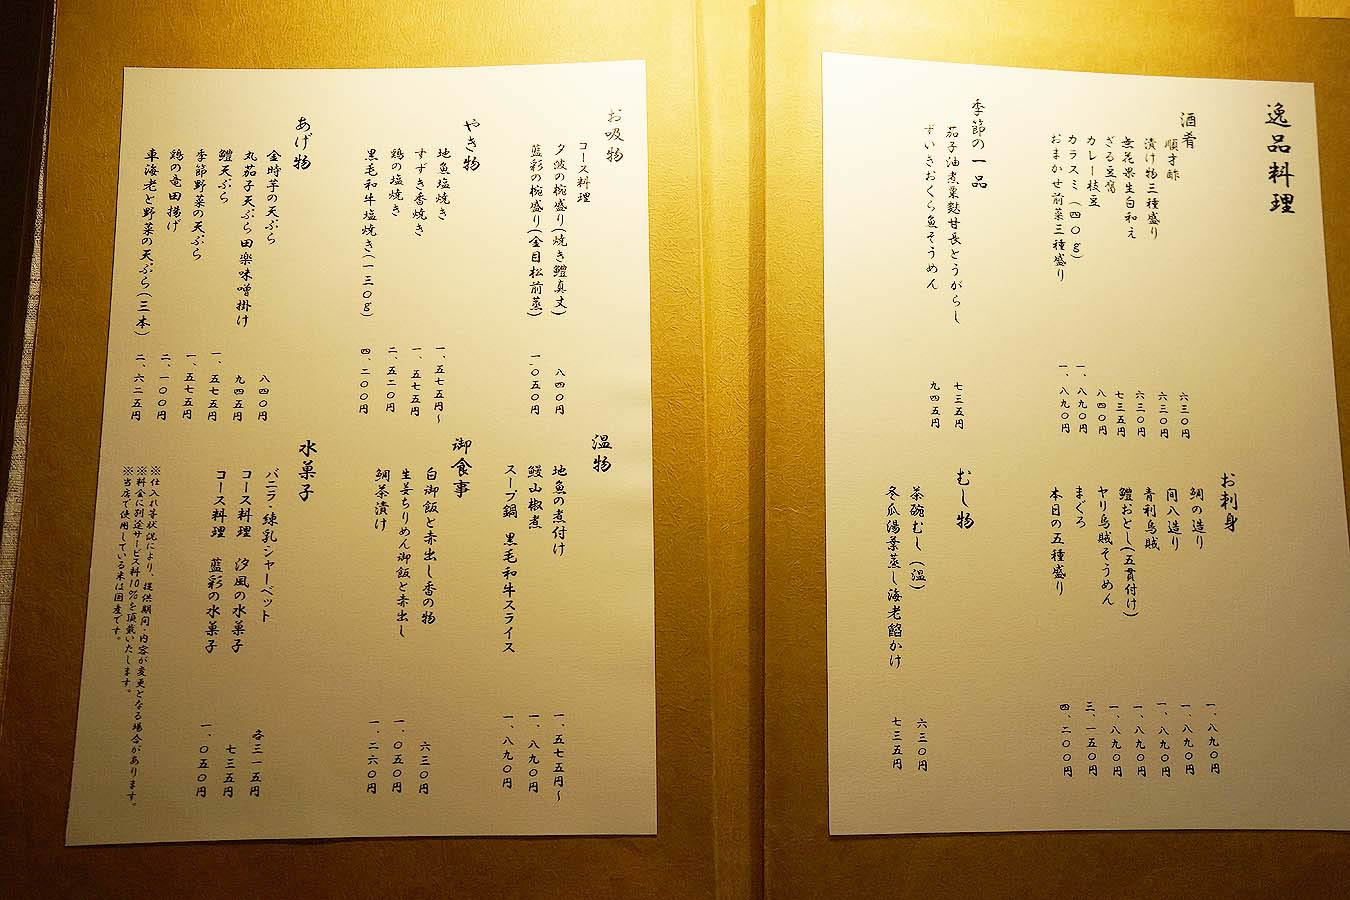 逸品料理
酒肴
順才酢
漬け物三種盛り
無花果生白和え
ざる豆腐
カレー枝豆
カラスミ（四〇g）
おまかせ前菜三種盛り
六三〇円
六三〇円
七三五円
六三〇円
八四〇円
一、八九〇円
一、八九〇円
季節の一品
茄子油煮粟麩甘長とうがらし
ずいきおくら魚そうめん
七三五円
九四五円
お刺身
鯛の造り
間八造り
青利烏賊
鱧おとし（五貫付け）
ヤリ烏賊そうめん
まぐろ
本日の五種盛り
一、八九〇円
一、八九〇円
一、八九〇円
一、八九〇円
一、八九〇円
三、一五〇円
四、二〇〇円
むし物
茶碗むし（温）
冬瓜湯葉蒸し海老餡かけ
六三〇円
七三五円
お吸物
コース料理
夕波の椀盛り（焼き鱧真丈）
藍彩の椀盛り（金目松前蒸）
八四〇円
一、〇五〇円
やき物
地魚塩焼き
すずき香焼き
鶏の塩焼き
黒毛和牛塩焼き（一三〇g）
一、五七五円〜
一、五七五円
二、五二〇円
四、二〇〇円
あげ物
金時芋の天ぷら
丸茄子天ぷら田楽味噌掛け
鱧天ぷら
季節野菜の天ぷら
鶏の竜田揚げ
車海老と野菜の天ぷら（三本）
八四〇円
九四五円
一、五七五円
一、五七五円
二、一〇〇円
二、六二五円
温物
地魚の煮付け
鰻山椒煮
スープ鍋　黒毛和牛スライス
一、五七五円〜
一、八九〇円
一、八九〇円
御食事
白御飯と赤出し香の物
生姜ちりめん御飯と赤出し
鯛茶漬け
六三〇円
一、〇五〇円
一、二六〇円
水菓子
バニラ・練乳シャーベット
コース料理　汐風の水菓子
コース料理　藍彩の水菓子
各三一五円
七三五円
一、〇五〇円
※仕入れ等状況により、提供期間・内容が変更となる場合があります。
※料金に別途サービス料10％を頂戴いたします。
※当店で使用している米は国産です。